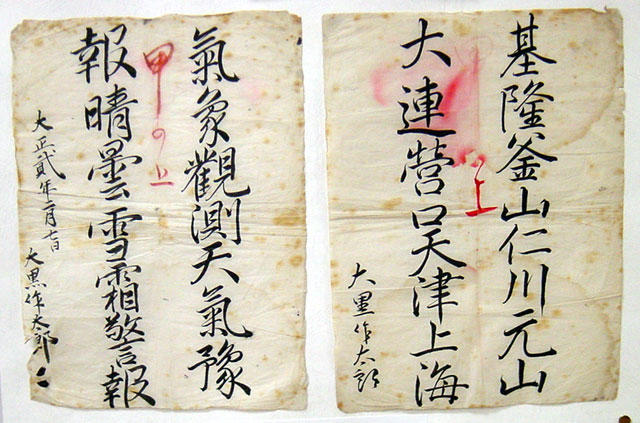 基隆釜山仁川元山
大連營口天津上海
上
大黒作太郎
氣象觀測天氣豫
報晴曇雪霜警報
甲の上
大正貳年二月七日
大黒作太郎